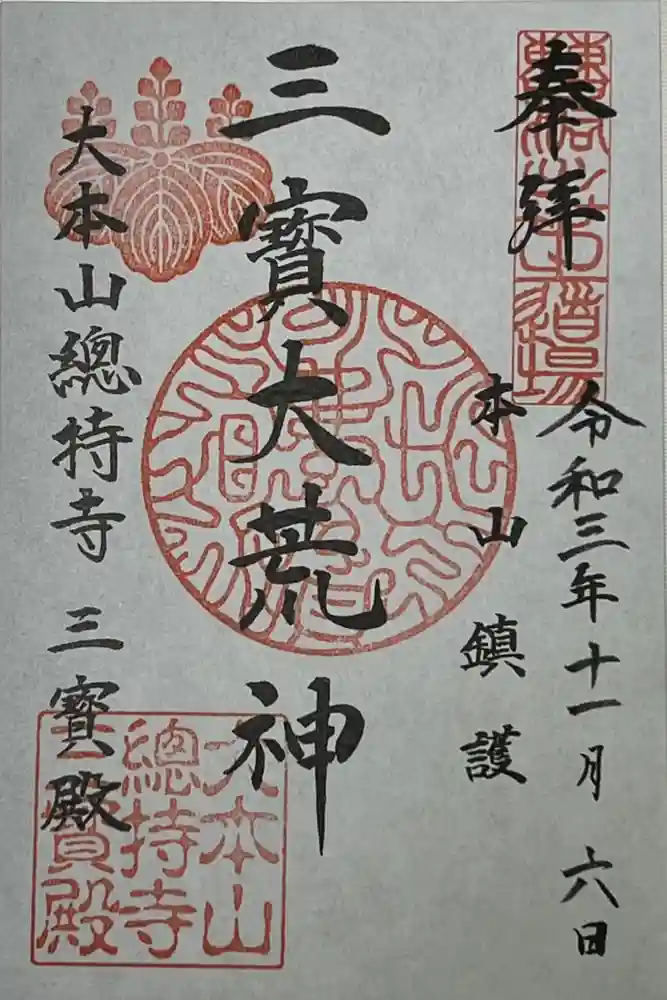 奉拜
令和三年十一月 六日
本山 鎮護
三寶大荒神
大本山總持寺 三寶殿
大本山
總持寺
三寶殿